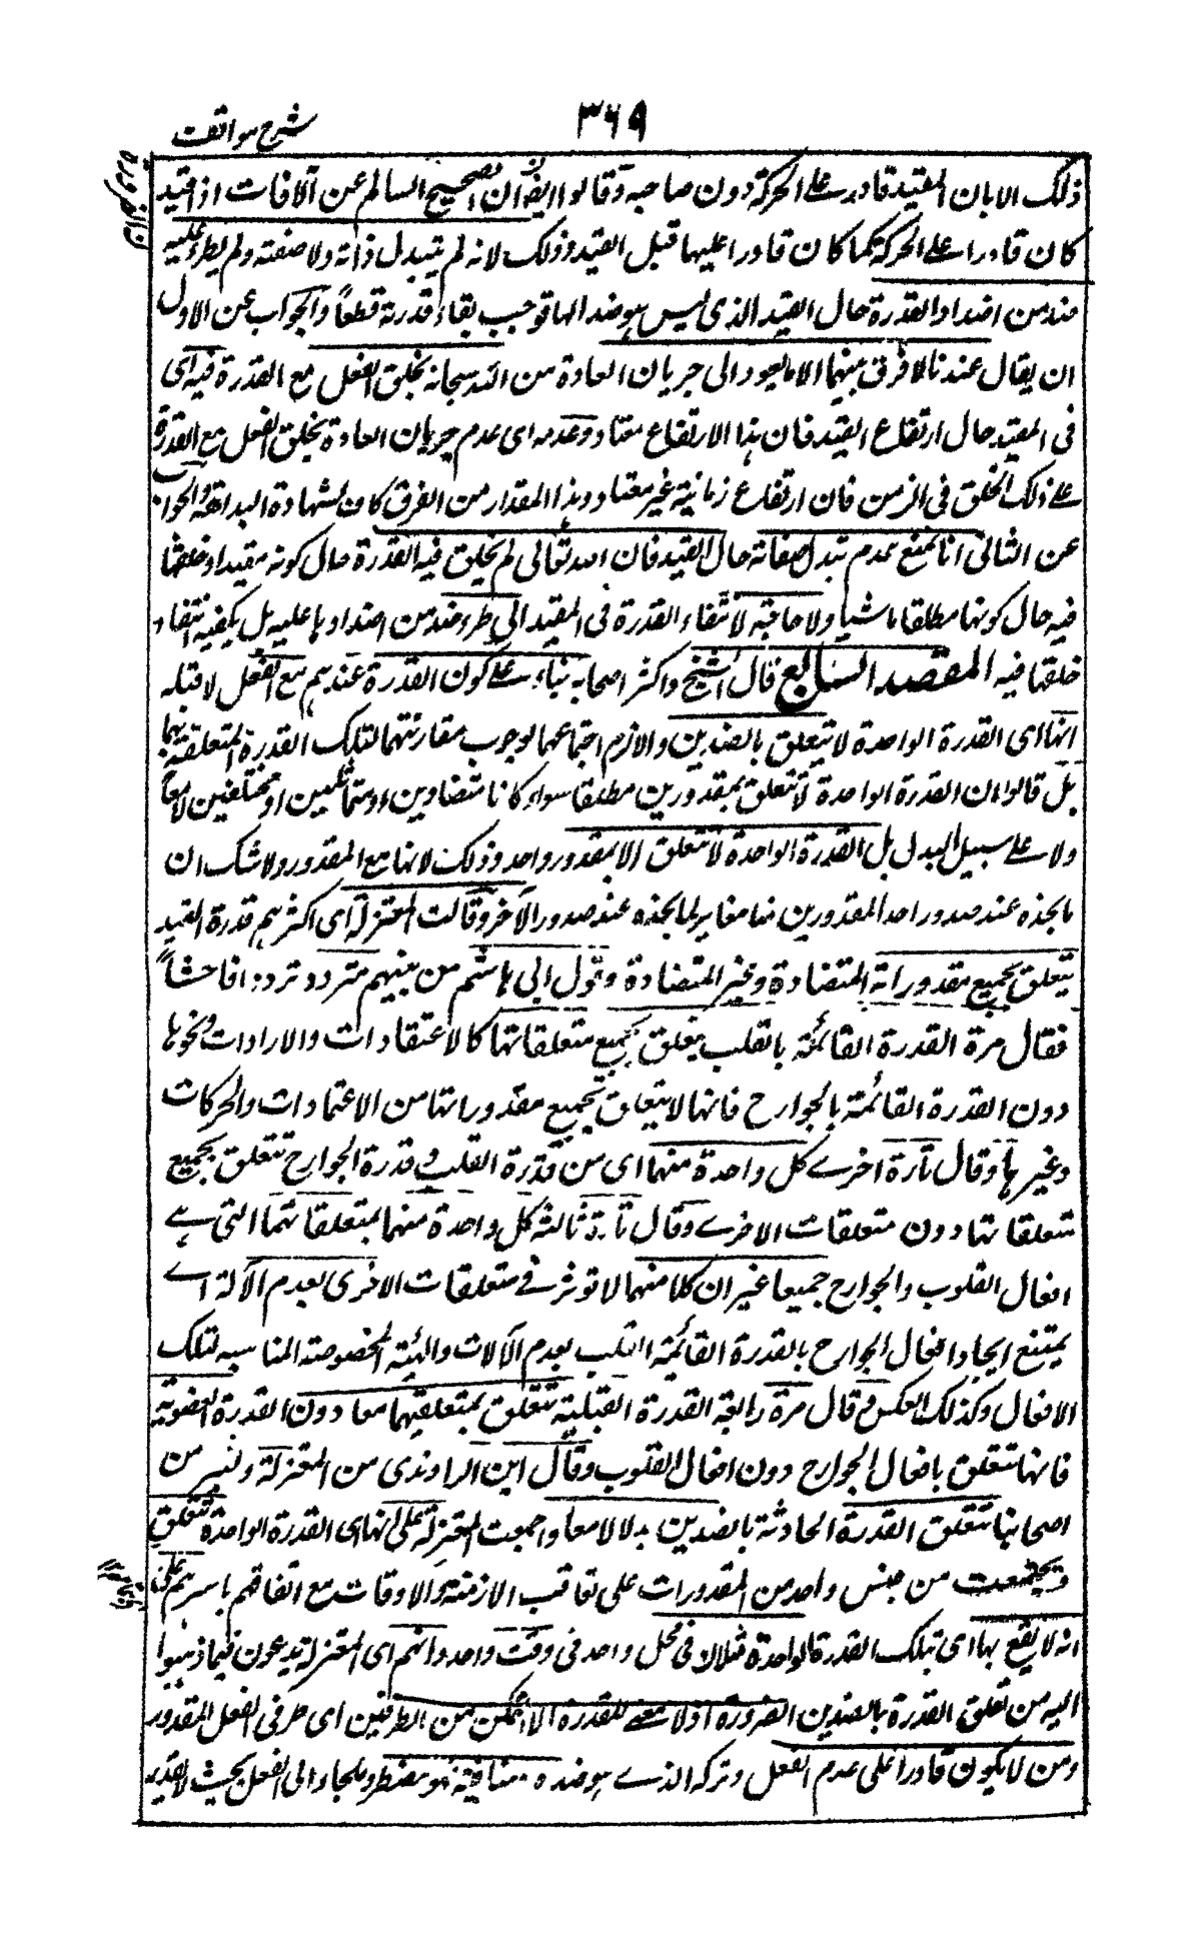 ۳۶۹
شرح مواقف
ذلك الا بان المقيد قادر على الحركة دون صاحبه وقالوا ايضا ان الصحيح السالم عن الآفات اذا قيد
كان قادرا على الحركة كما كان قادرا عليها قبل القيد وذلك لانه لم يتبدل ذاته ولا صفته ولم يطرء عليه
ضد من اضداد القدرة حال القيد الذى ليس هو ضد الها فوجب بقاء قدرته قطعاً والجواب عن الاول
ان يقال عندنا لا فرق بينهما الا ما يعود الى جريان العادة من الله سبحانه بخلق الفعل مع القدرة فيه اى
فى المقيد حال ارتفاع القيد فان هذا الارتفاع معتاد وعدمه اى عدم جريان العادة بخلق الفعل مع القدرة
على ذلك الخلق فى الزمن فان ارتفاع زمانته غير معتاد وهذا المقدار من الفرق كاف لشهادة البداهة والجواب
عن الثانى انا نمنع عدم تبدل صفاته حال القيد فان الله تعالى لم يخلق فيه القدرة حال كونه مقيدا وخلقها
فيه حال كونها مطلقا ماشيا ولا حاجة لانتفاء القدرة فى المقيد الى طرء ضد من اضدادها عليه بل يكفيه انتفاء
خلقها فيه المقصد السابع قال الشيخ واكثر اصحابه بناء على كون القدرة عندهم مع الفعل لا قبله
انها اى القدرة الواحدة لا تتعلق بالضدين والا لزم اجتماعهما لوجوب مقارنتهما لتلك القدرة المتعلقة بهما
بل قالوا ان القدرة الواحدة لا تتعلق بمقدورين مطلقا سواء كانا متضادين او متماثلين او مختلفين لا معاً
ولا على سبيل البدل بل القدرة الواحدة لا تتعلق الا بمقدور واحد وذلك لانها مع المقدور ولا شك ان
ما نجده عند صدور احد المقدورين منا مغاير لما نجده عند صدور الآخر وقالت المعتزلة اى اكثرهم قدرة العبد
تتعلق بجميع مقدوراته المتضادة وغير المتضادة وقول ابى هاشم من بينهم متردد ترددا فاحشاً
فقال مرة القدرة القائمة بالقلب تتعلق بجميع متعلقاتها كالاعتقادات والارادات ونحوها
دون القدرة القائمة بالجوارح فانها لا تتعلق بجميع مقدوراتها من الاعتمادات والحركات
وغيرها وقال تارة اخرے كل واحدة منهما اى من قدرة القلب وقدرة الجوارح تتعلق بجميع
متعلقاتها دون متعلقات الاخرے وقال تارة ثالثة كل واحدة منهما بمتعلقاتهما التى هے
افعال القلوب والجوارح جميعا غير ان كلا منهما لا تؤثر فى متعلقات الاخرى لعدم الآلة اے
يمتنع ايجاد افعال الجوارح بالقدرة القائمة بالقلب لعدم الآلات والبنية المخصوصة المناسبة لتلك
الافعال وكذلك العكس و قال مرة رابعة القدرة القلبية تتعلق بمتعلقيهما معا دون القدرة العضوية
فانها تتعلق بافعال الجوارح دون افعال القلوب وقال ابن الراوندى من المعتزلة وكثير من
اصحابنا تتعلق القدرة الحادثة بالضدين بدلا لا معا واجمعت المعتزلة على انها اى القدرة الواحدة تتعلق
من جنس واحد من المقدورات على تعاقب الازمنة والاوقات مع اتفاقهم باسرهم على
انه لا يقع بها اى بتلك القدرة الواحدة مثلان فى محل واحد فى وقت واحد وانهم اى المعتزلة يدعون فيما ذهبوا
اليه من تعلق القدرة بالضدين الضرورة اذ لا معنى للقدرة الا التمكن من الطرفين اى طرفى الفعل المقدور
ومن لا يكون قادرا على عدم الفعل وتركه الذے هو ضده ومنافيه فهو مضطر وملجأ الى الفعل بحيث لا يقدر